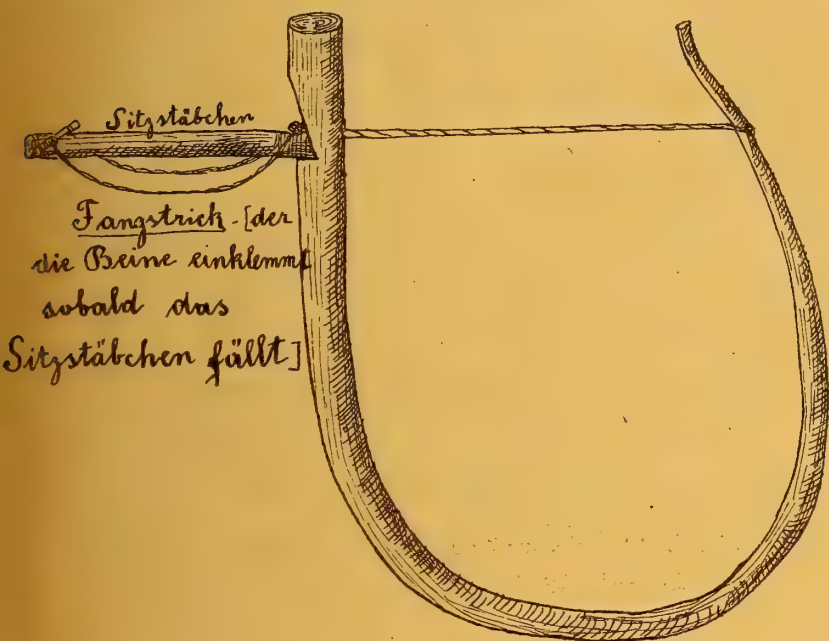 Sitzstäbchen
Fangstrick - [der
die Beine einklemmt
sobald das
Sitzstäbchen fällt]